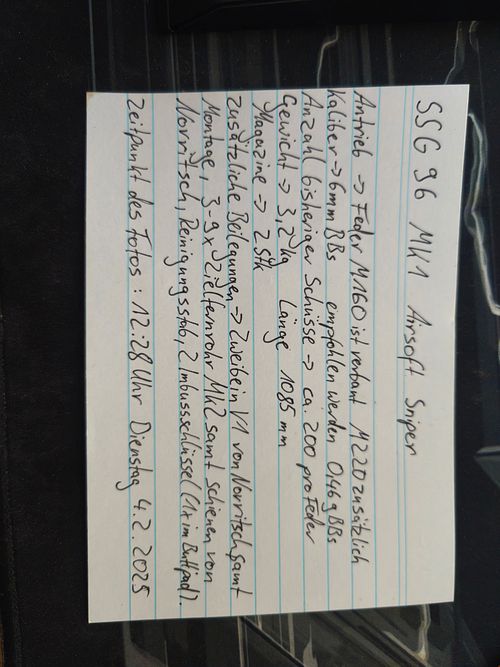 SSG 96 MK1 Airsoft Sniper
Antrieb → Feder M160 ist verbaut M220 zusätzlich
Kaliber → 6mm BBs empfohlen werden 0,46g BBs
Anzahl bisheriger Schüsse → ca. 200 pro Feder
Gewicht → 3,2kg Länge 1085 mm
Magazine → 2 Stk
Zusätzliche Beilegungen → Zweibein V1 von Novritsch, samt
Montage, 3-9x Zielfernrohr MK2 samt schienen von
Novritsch, Reinigungsstab, 2 Imbussschlüssel (1x im Buttpad).
Zeitpunkt des Fotos: 12:28 Uhr Dienstag 4.2.2025